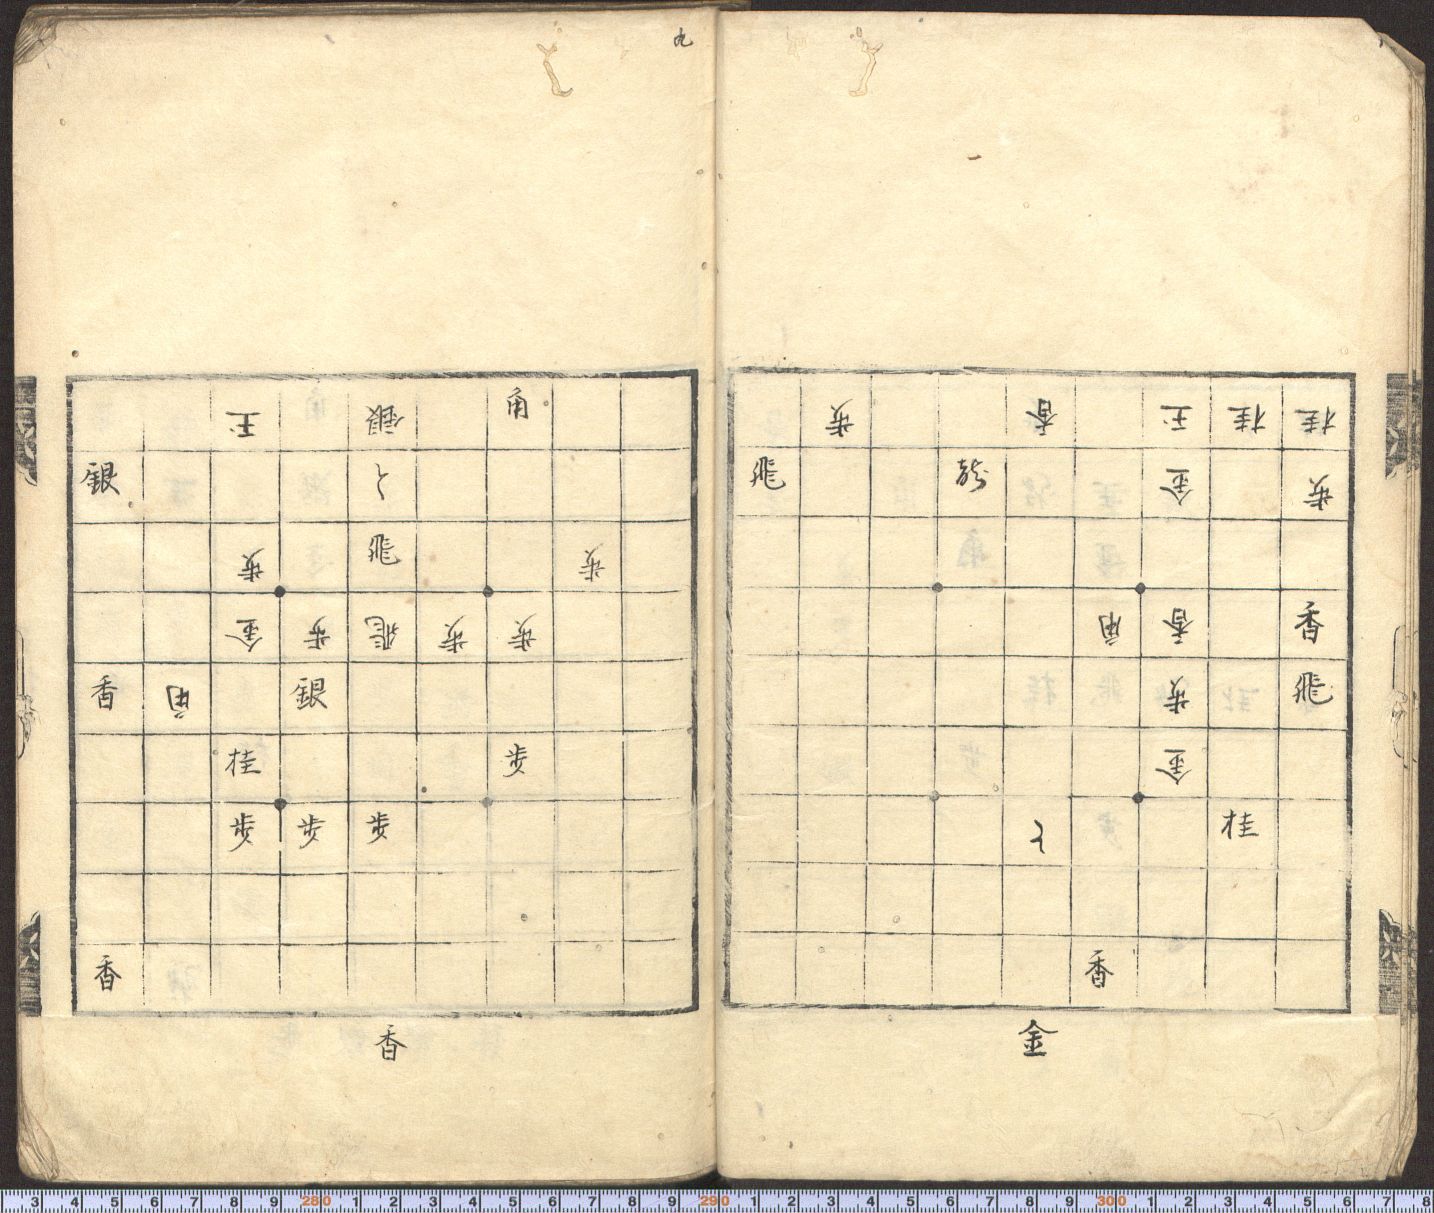 歩 香 王 桂 桂
飛 龍 金 歩
角 香 香
歩 飛
金
と 桂
香
金
九
王 銀 角
銀 と
歩 飛 歩
金 歩 飛 歩 歩
香 角 銀
桂 歩
歩 歩 歩
香
香
3 4 5 6 7 8 9 280 1 2 3 4 5 6 7 8 9 290 1 2 3 4 5 6 7 8 9 300 1 2 3 4 5 6 7 8